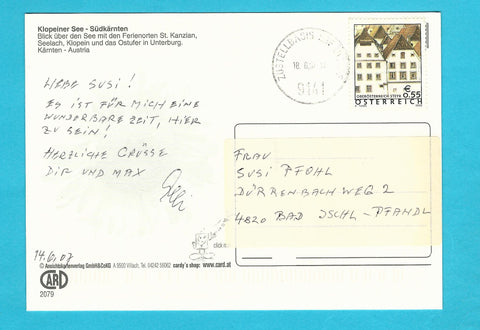 Klopeiner See - Südkärnten
Blick über den See mit den Ferienorten St. Kanzian,
Seelach, Klopein und das Ostufer in Unterburg.
Kärnten - Austria
LIEBE SUSI!
ES IST FÜR MICH EINE
WUNDERBARE ZEIT, HIER
ZU SEIN!
HERZLICHE GRÜSSE
DIR UND MAX
14.6.07
© Ansichtskartenverlag GmbH&CoKG A 9500 Villach, Tel. 04242 cardy's shop: www.card.at
CARD
2079
ZUSTELLBASIS
18.6.
9141
€
0.55
OBERÖSTERREICH STEYR
ÖSTERREICH
FRAU
SUSI PFOHL
DÜRRENBACHWEG 2
4820 BAD ISCHL-PFANDL